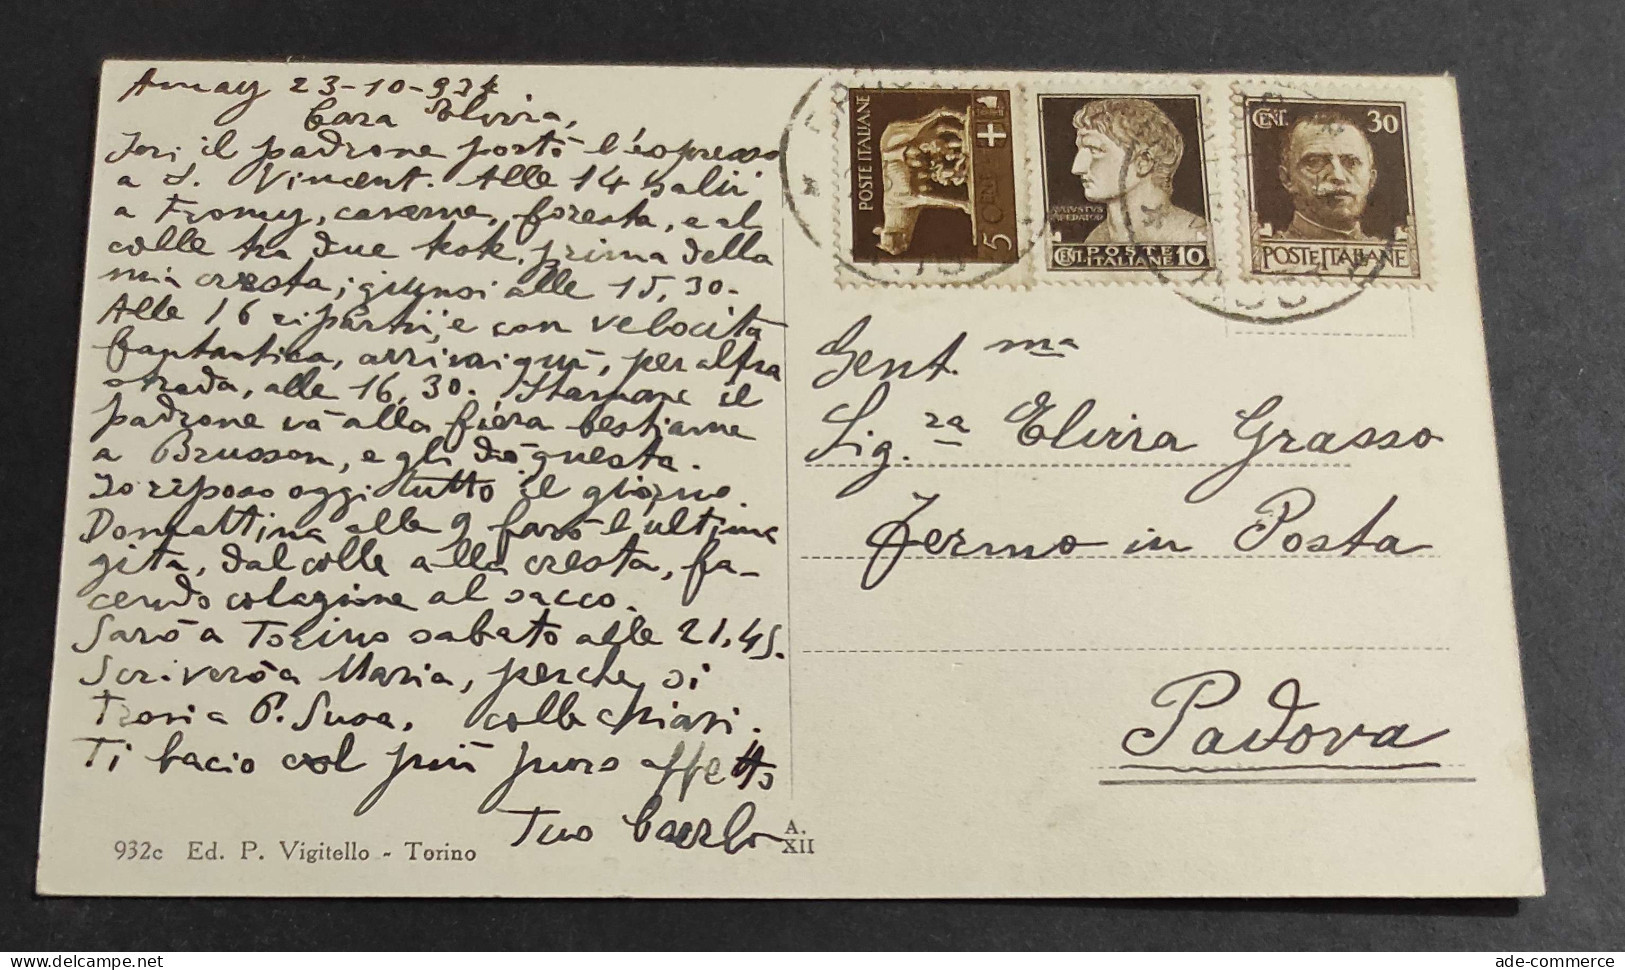 Amay 23-10-934
Cara Elvira,
Ieri il padrone portò l'espresso
a S. Vincent. Alle 14 salii
a Fromy, caserme, foresta, e al
colle tra due teste, prima della
mia cresta; giunsi alle 15,30-
Alle 16 ripartii, e con velocità
fantastica, arrivai quì, per altra
strada, alle 16,30. Stamane il
padrone và alla fiera bestiame
a Brusson, e gli dò questa.
Io riposo oggi tutto il giorno.
Domattina alle 9 farò l'ultima
gita, dal colle alla cresta, fa-
cendo colazione al sacco.
Sarò a Torino sabato alle 21,45.
Scriverò a Maria, perche si
trovi a P. Susa, colle chiavi.
Ti bacio col più puro affetto
Tuo Carlo
932c Ed. P. Vigitello - Torino
A.
XII
POSTE ITALIANE
5 CENT.
AVGVSTVS
IMPERATOR
CENT. POSTE ITALIANE 10
CENT. 30
POSTE ITALIANE
Gent.ma
Sig.ra Elvira Grasso
Fermo in Posta
Padova
ade-commerce
delcampe.net